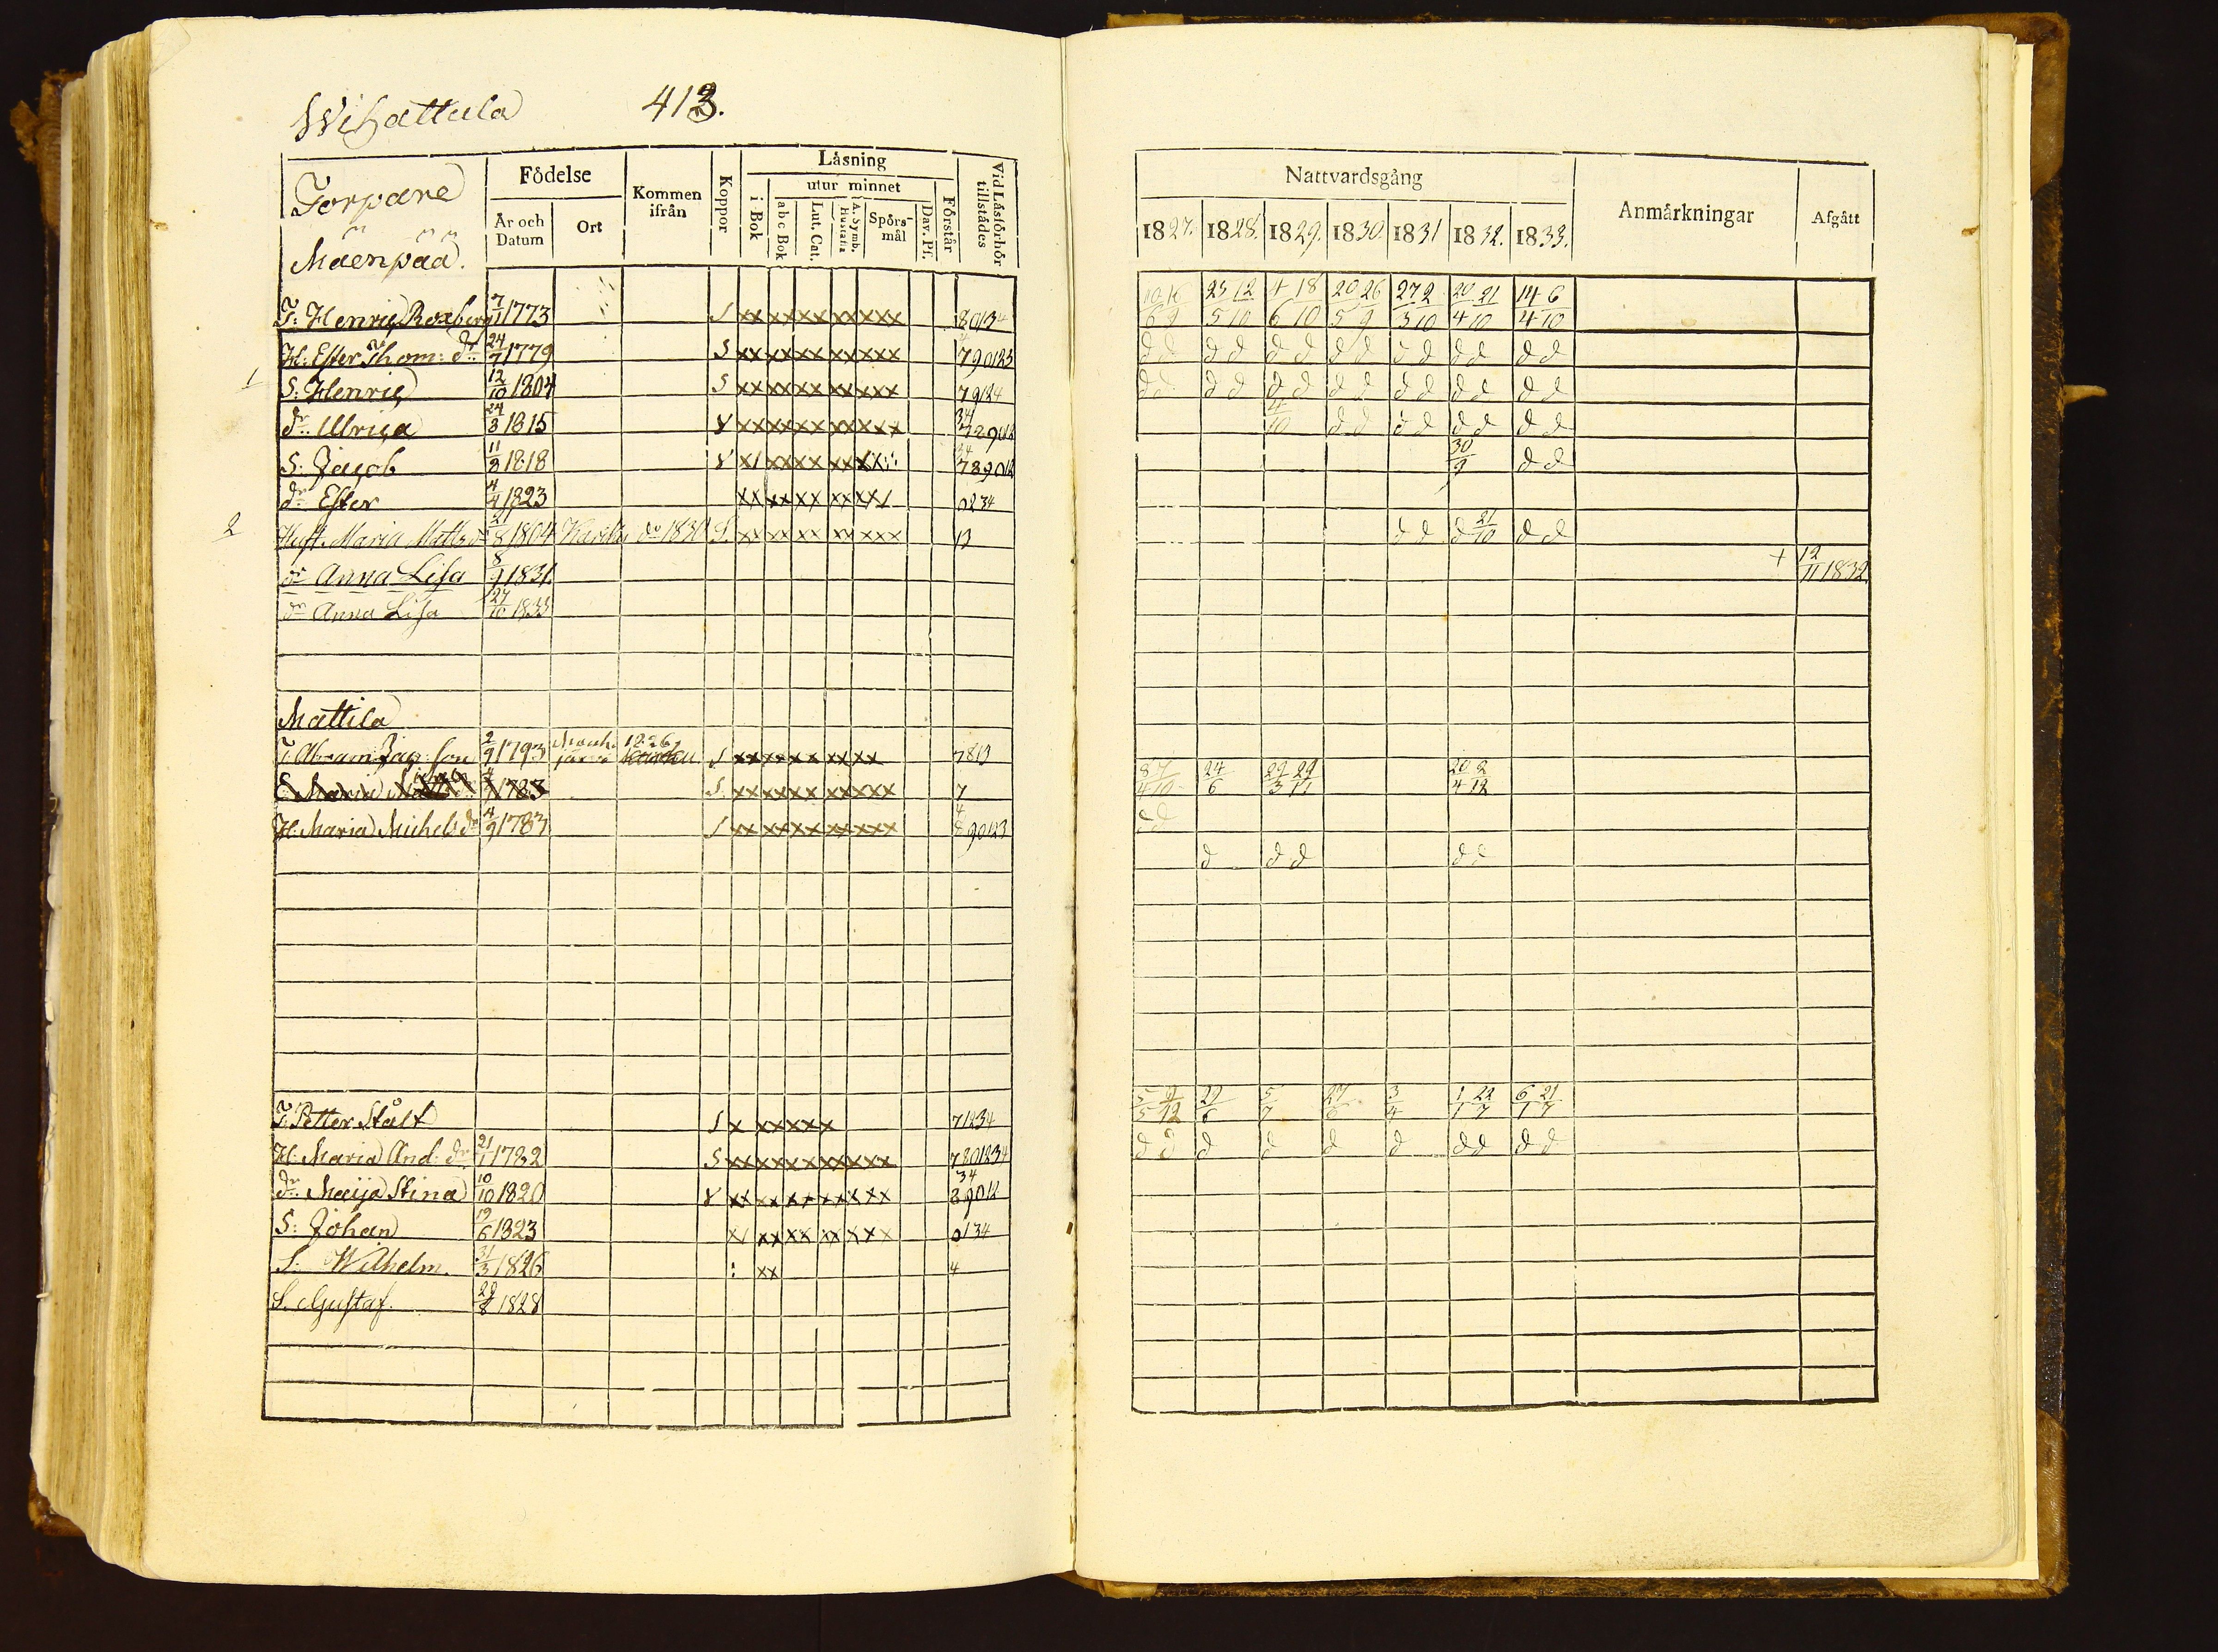 Wihattula 413.
Torpare
Mäenpää.
Födelse
År och Datum
Ort
Kommen ifrån
Koppor
Läsning
i Bok
utur minnet
a b c Bok
Lut. Cat.
A. Symb. Hustafla
Spörsmål
Dav. Ps.
Förstår
Vid Läsförhör tillstädes
T: Henric Roxberg 7/1 1773 S xx xx xx xx xxx 80134
H: Ester Thom: dr 24/7 1779 S xx xx xx xx xxx 790123
1 S: Henric 12/10 1804 S xx xx xx xx xxx 79124
dr Ulrica 24/3 1815 Y xx xx xx xx xxx 34 789012
S: Jacob 11/3 1818 Y x/ xx xx xx 34 789012
dr Ester 4/4 1823 xx xx xx xx xx/ 0234
2 Hust. Maria Matts dr 21/8 1804 do 1830 S. xx xx xx xx xxx 13
dr Anna Lisa 8/9 1831.
dr Anna Lisa 27/10 1833
Mattila
T. Abram Jac. son 2/9 1793 1826 S xx xx xx xx xx 7813
Maria 1783 S. xx xx xx xx xxx 7
H: Maria Michels dr 4/9 1783 S xx xx xx xx xxx 4 890123
T: Petter Stålt S x xx xx x 71234
H: Maria And: dr 21/1 1782 S xx xx xx xx xxx 7801234
dr Maija Stina 10/10 1820 Y xx xx xx xx xxx 34 89012
S: Johan 19/6 1823 x/ xx xx xx xxx 0134
S. Wilhelm. 31/3 1826 : xx 4
S. Gustaf. 29/8 1828
Nattvardsgång
1827. 1828. 1829. 1830. 1831 1832. 1833.
Anmärkningar
Afgått
10/6 16/9 25/5 12/10 4/6 18/10 20/5 26/9 27/3 2/10 20/4 21/10 14/4 6/10
d d d d d d d d d d d d d d
d d d d d d d d d d d d d d
4/10 d d d d d d d d
30/9 d d
d d d 21/10 d d
+ 12/11 1832.
8/4 7/10 24/6 29/3 29/11 20/4 2/12
d d
d d d d d
5/5 9/12 29/6 5/7 27/6 3/4 1/1 22/7 6/1 21/7
d d d d d d d d d d